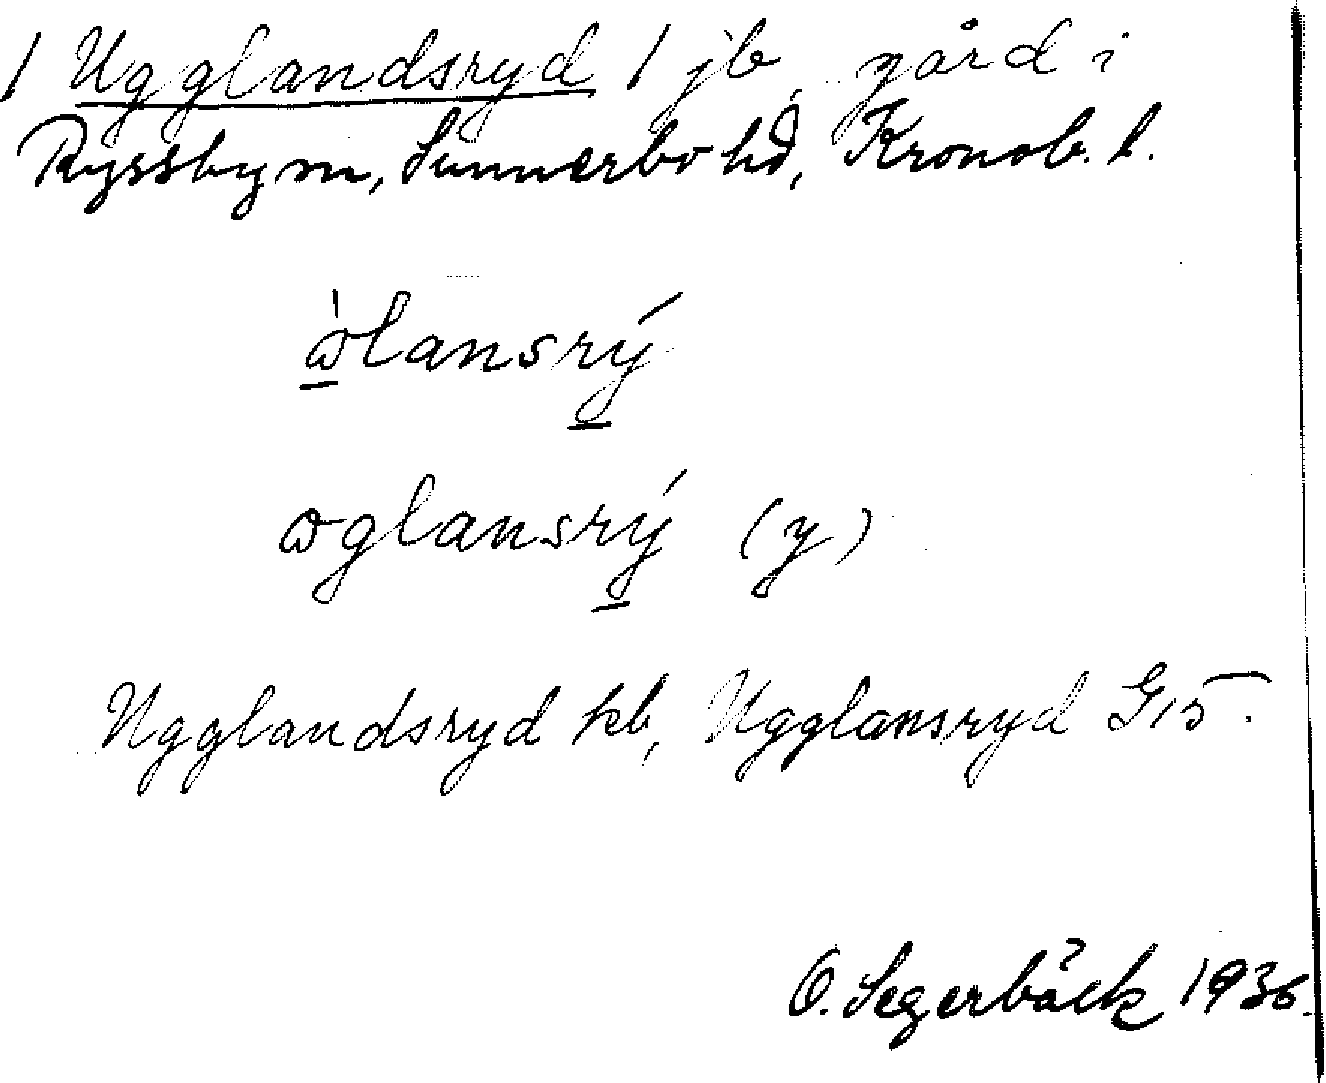 / Ugglandsryd / jb, gård i
Ryssby sn, Sunnerbo hd, Kronob. l.
ὼ̲lansrý̲
ωglansrý̲ (y)
Ugglandsryd kb, Ugglansryd G15.
O. Segerbäck 1936.